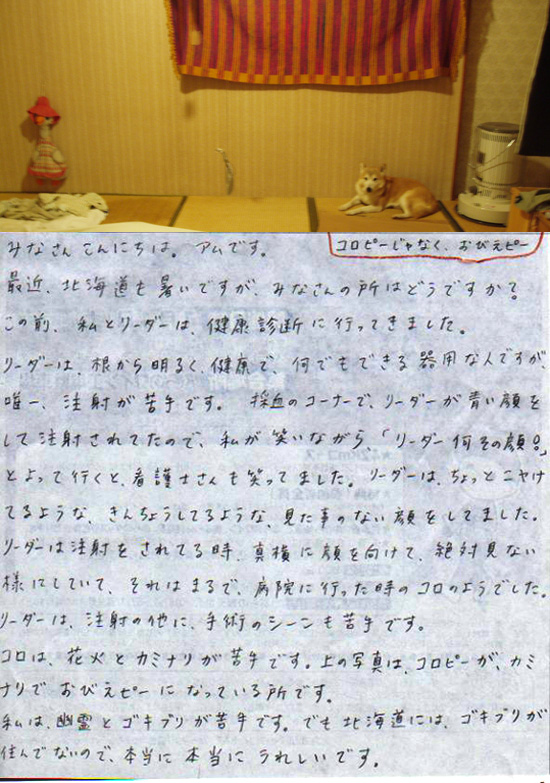 コロピーじゃなく、おびえピー
みなさん こんにちは。 アムです。
最近、北海道も暑いですが、みなさんの所はどうですか?
この前、私とリーダーは、健康診断に行ってきました。
リーダーは、根から明るく、健康で、何でもできる器用な人ですが、
唯一、注射が苦手です。 採血のコーナーで、リーダーが青い顔を
して注射されてたので、私が笑いながら「リーダー何その顔。」
とよって行くと、看護士さんも笑ってました。リーダーは、ちょっとニヤけ
てるような、きんちょうしてるような、見た事のない顔をしてました。
リーダーは注射をされてる時、真横に顔を向けて、絶対見ない
様にしていて、それはまるで、病院に行った時のコロのようでした。
リーダーは、注射の他に、手術のシーンも苦手です。
コロは、花火とカミナリが苦手です。上の写真は、コロピーが、カミ
ナリで おびえピーになっている所です。
私は、幽霊とゴキブリが苦手です。でも北海道には、ゴキブリが
住んでないので、本当に 本当に うれしいです。